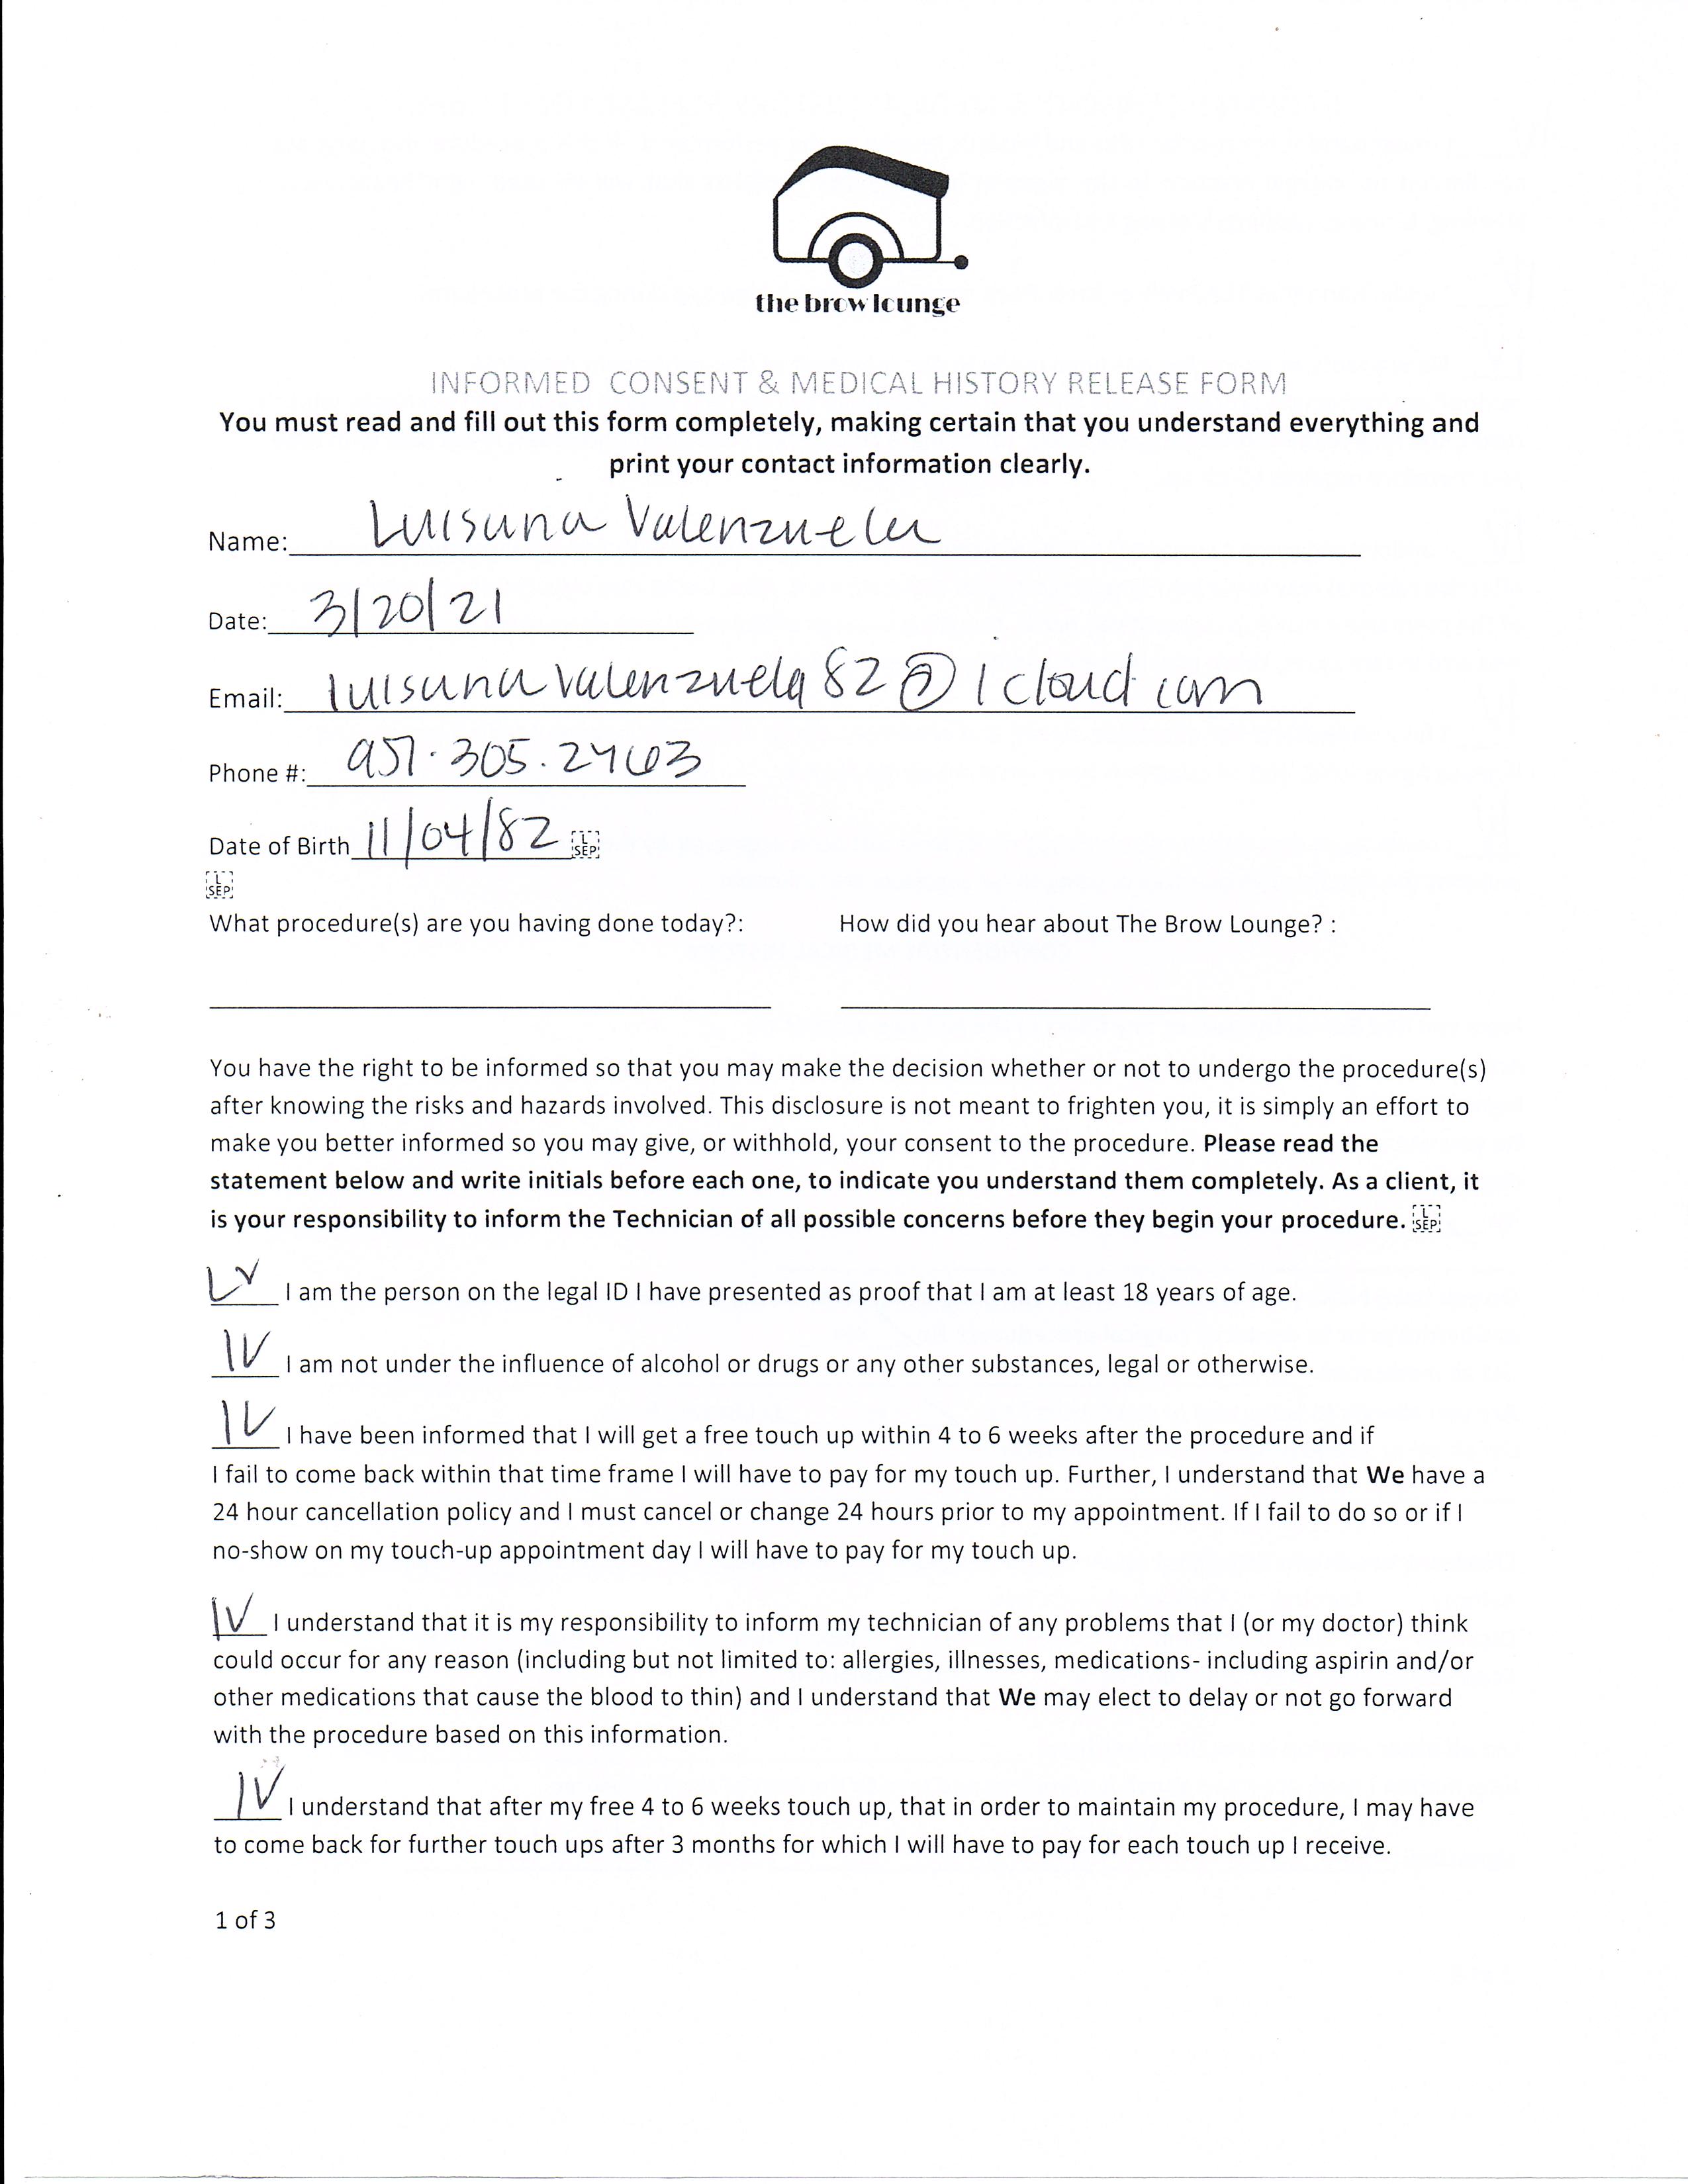 the brow lounge
INFORMED CONSENT & MEDICAL HISTORY RELEASE FORM
You must read and fill out this form completely, making certain that you understand everything and
print your contact information clearly.
Name: Luisana Valenzuela
Date: 3/20/21
Email: luisanavalenzuela82@icloud.com
Phone #: 951.305.2463
Date of Birth 11/04/82 L SEP
L SEP
What procedure(s) are you having done today?: How did you hear about The Brow Lounge? :
You have the right to be informed so that you may make the decision whether or not to undergo the procedure(s)
after knowing the risks and hazards involved. This disclosure is not meant to frighten you, it is simply an effort to
make you better informed so you may give, or withhold, your consent to the procedure. Please read the
statement below and write initials before each one, to indicate you understand them completely. As a client, it
is your responsibility to inform the Technician of all possible concerns before they begin your procedure. L SEP
LV I am the person on the legal ID I have presented as proof that I am at least 18 years of age.
LV I am not under the influence of alcohol or drugs or any other substances, legal or otherwise.
LV I have been informed that I will get a free touch up within 4 to 6 weeks after the procedure and if
I fail to come back within that time frame I will have to pay for my touch up. Further, I understand that We have a
24 hour cancellation policy and I must cancel or change 24 hours prior to my appointment. If I fail to do so or if I
no-show on my touch-up appointment day I will have to pay for my touch up.
LV I understand that it is my responsibility to inform my technician of any problems that I (or my doctor) think
could occur for any reason (including but not limited to: allergies, illnesses, medications- including aspirin and/or
other medications that cause the blood to thin) and I understand that We may elect to delay or not go forward
with the procedure based on this information.
LV I understand that after my free 4 to 6 weeks touch up, that in order to maintain my procedure, I may have
to come back for further touch ups after 3 months for which I will have to pay for each touch up I receive.
1 of 3